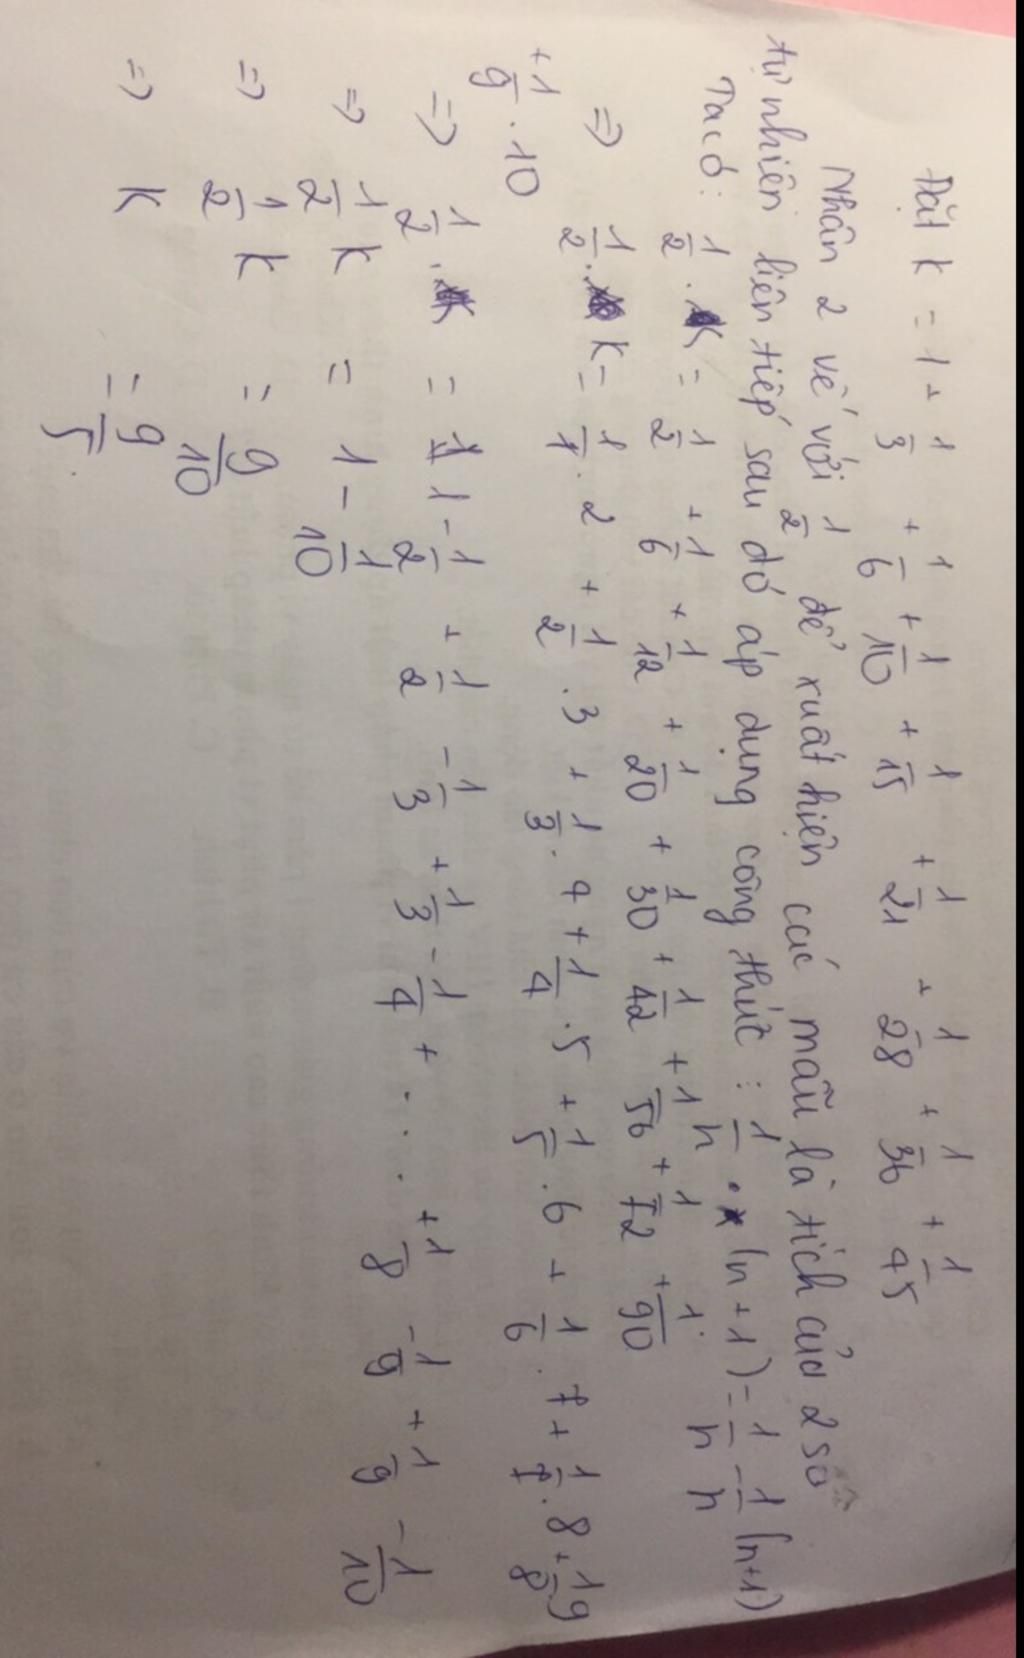 Đặt K = 1 + 1/3 + 1/6 + 1/10 + 1/15 + 1/21 + 1/28 + 1/36 + 1/45
Nhân 2 vế với 1/2 để xuất hiện các mẫu là tích của 2 số
tự nhiên liên tiếp sau đó áp dụng công thức : 1/n . (n+1) = 1/n - 1/n (n+1)
Ta có: 1/2 . K = 1/2 + 1/6 + 1/12 + 1/20 + 1/30 + 1/42 + 1/56 + 1/72 + 1/90
=> 1/2 . K = 1/1 . 2 + 1/2 . 3 + 1/3 . 4 + 1/4 . 5 + 1/5 . 6 + 1/6 . 7 + 1/7 . 8 + 1/8 9
+ 1/9 . 10
=> 1/2 . K = 1 - 1/2 + 1/2 - 1/3 + 1/3 - 1/4 + . . . . + 1/8 - 1/9 + 1/9 - 1/10
=> 1/2 K = 1 - 1/10
=> 1/2 K = 9/10
=> K = 9/5 .